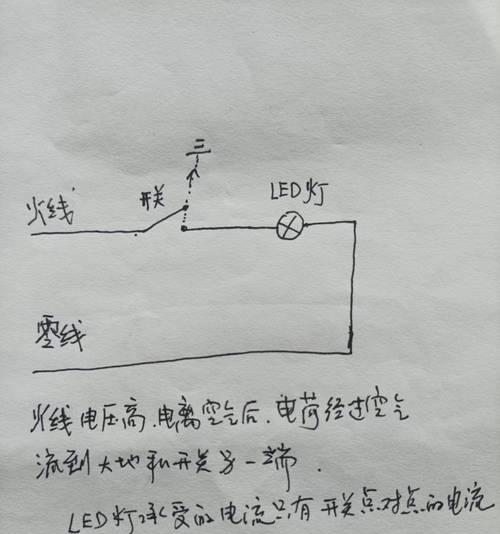 LED灯
开关
火线
零线
火线电压高.电离空气后.电荷经过空气
流到大地和开关另一端.
LED灯承受的电流只有开关点对点的电流